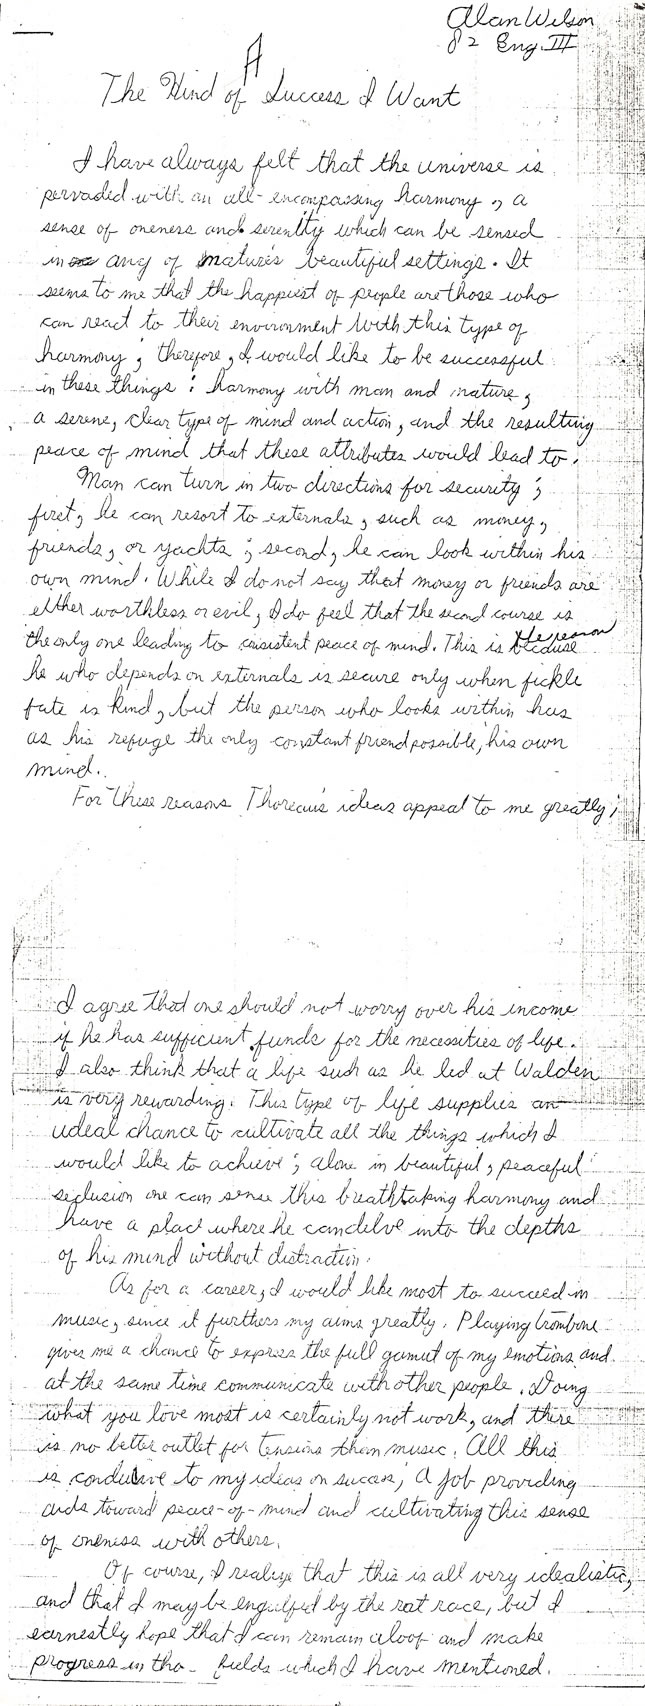 Alan Wilson
82 Eng. III
A
The Kind of Success I Want
I have always felt that the universe is
pervaded with an all-encompassing harmony, a
sense of oneness and serenity which can be sensed
in any of nature's beautiful settings. It
seems to me that the happiest of people are those who
can react to their environment with this type of
harmony; therefore, I would like to be successful
in these things: harmony with man and nature,
a serene, clear type of mind and action, and the resulting
peace of mind that these attributes would lead to.
Man can turn in two directions for security;
first, he can resort to externals, such as money,
friends, or yachts; second, he can look within his
own mind. While I do not say that money or friends are
either worthless or evil, I do feel that the second course is
the only one leading to consistent peace of mind. This is because the reason
he who depends on externals is secure only when fickle
fate is kind, but the person who looks within has
as his refuge the only constant friend possible, his own
mind.
For these reasons Thoreau's ideas appeal to me greatly;
I agree that one should not worry over his income
if he has sufficient funds for the necessities of life.
I also think that a life such as he led at Walden
is very rewarding. This type of life supplies an
ideal chance to cultivate all the things which I
would like to achieve; alone in beautiful, peaceful
seclusion one can sense this breathtaking harmony and
have a place where he can delve into the depths
of his mind without distraction.
As for a career, I would like most to succeed in
music, since it furthers my aims greatly. Playing trombone
gives me a chance to express the full gamut of my emotions and
at the same time communicate with other people. Doing
what you love most is certainly not work, and there
is no better outlet for tensions than music. All this
is conducive to my ideas on success; a job providing
aids toward peace-of-mind and cultivating this sense
of oneness with others.
Of course, I realize that this is all very idealistic,
and that I may be engulfed by the rat race, but I
earnestly hope that I can remain aloof and make
progress in the fields which I have mentioned.